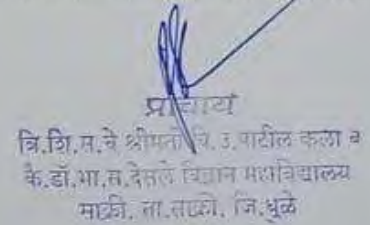 प्राचार्य
त्रि.शि.म.चे श्रीमती वि. उ. पाटील कला व
कै.डॉ.भा.स.देसले विज्ञान महाविद्यालय
साक्री, ता.साक्री, जि.धुळे